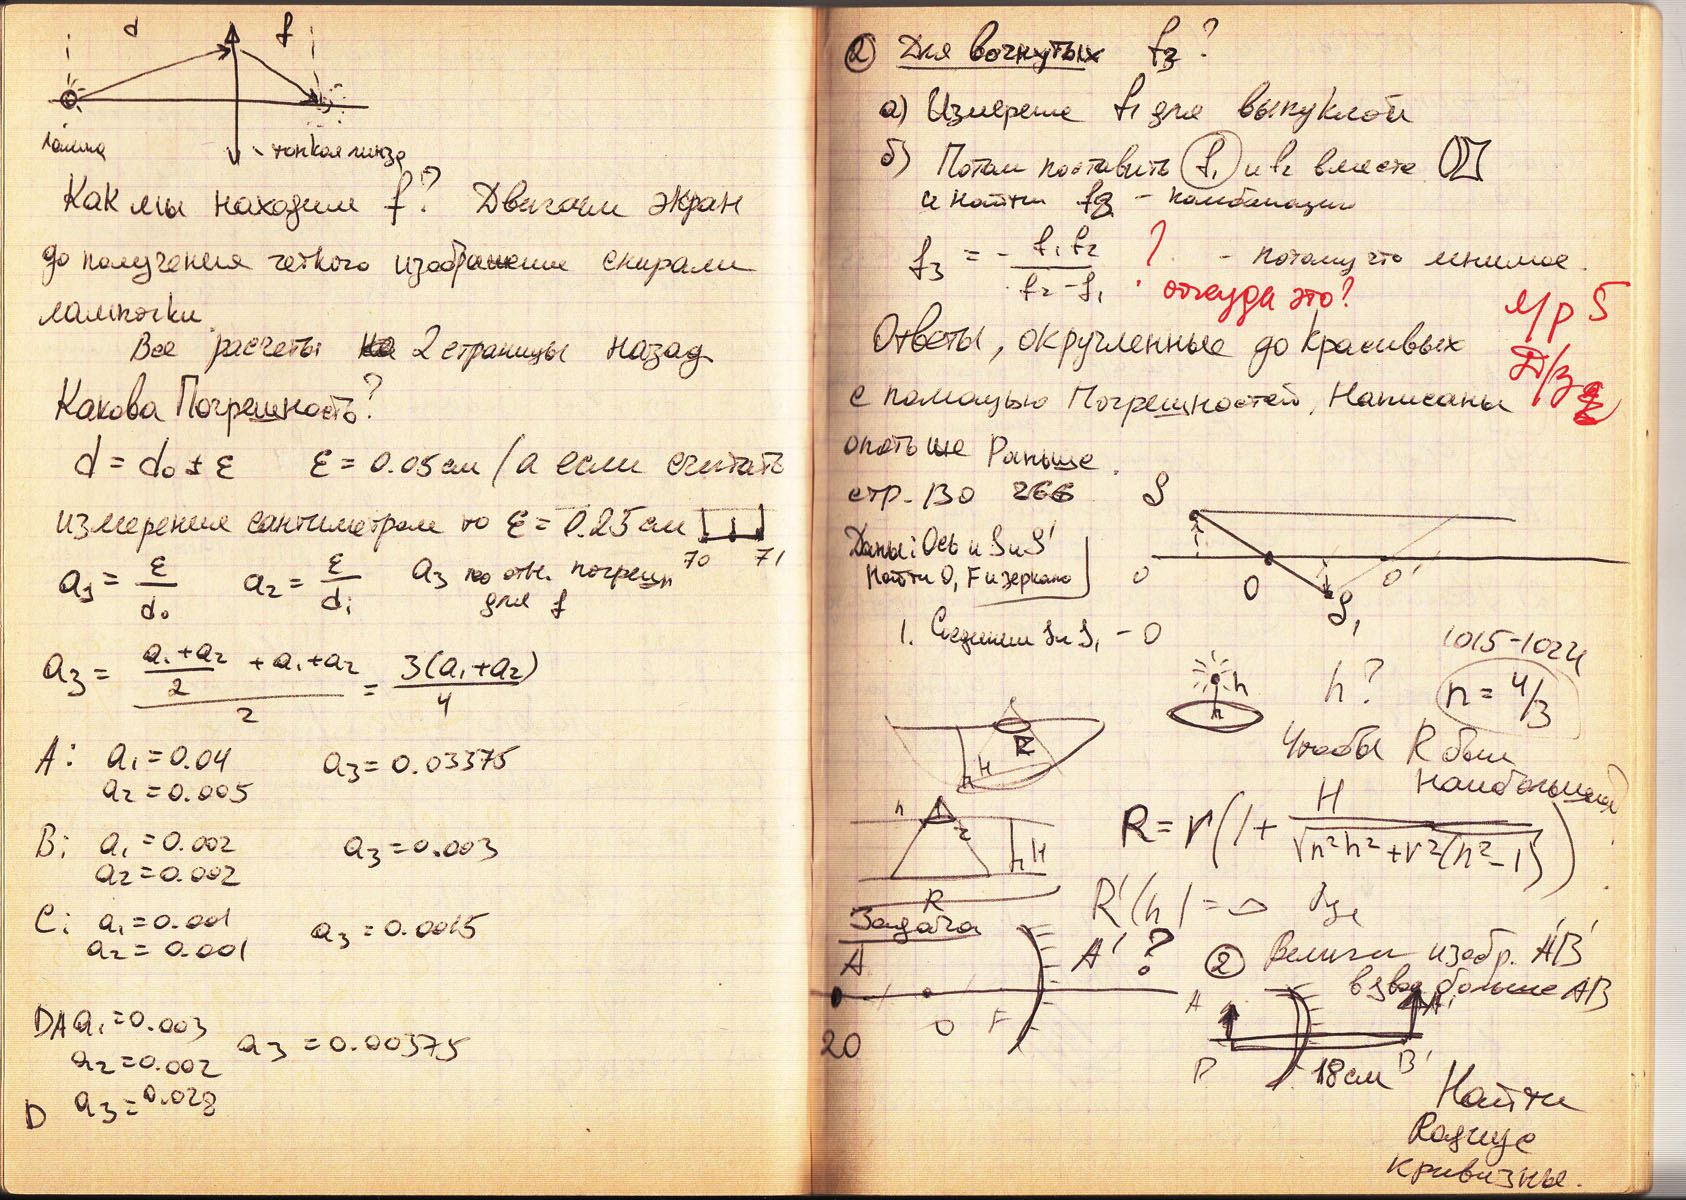 d f
лампа тонкая линза
Как мы находим f? Двигаем экран
до получения четкого изображение спирали
лампочки.
Все расчеты на 2 страницы назад
Какова Погрешность?
d = d₀ ± ε ε = 0.05 см / а если считать
измерения сантиметром то ε = 0.25 см
70 71
a₁ = ε/d₀ a₂ = ε/dᵢ a₃ по отн. погрешн
для f
a₃ = ((a₁+a₂)/2 + a₁+a₂)/2 = 3(a₁+a₂)/4
A: a₁ = 0.04 a₃ = 0.03375
a₂ = 0.005
B: a₁ = 0.002 a₃ = 0.003
a₂ = 0.002
C: a₁ = 0.001 a₃ = 0.0015
a₂ = 0.001
DA a₁ = 0.003
a₂ = 0.002 a₃ = 0.00375
D a₃ = 0.028
② Для вогнутых f₃?
а) Измерение f₁ для выпуклой
б) Потом поставить f₁ и f₂ вместе
и найти f₃ - комбинации
f₃ = - f₁f₂/(f₂-f₁) ? - потому что мнимое.
откуда это?
Л/р 5
Д/з
Ответы, округленные до красивых
с помощью Погрешностей, Написаны
опять же Раньше.
стр. 130 266
Даны: Ось и S и S'
Найти O, F и зеркало
S
O O O'
S₁
1. Соединим S и S₁ - O
1015-1024
h
h? n = 4/3
Чтобы R был
наибольшим
R
h H
R = r(1 + H/√(n²h² + r²(n²-1)))
h r
h H
R
R'(h) = 0
Задача
A A' ?
O F
20
② Величин изобр. A'B'
в 3 раз больше AB
A A₁
B B'
18 см
Найти
Радиус
кривизны.